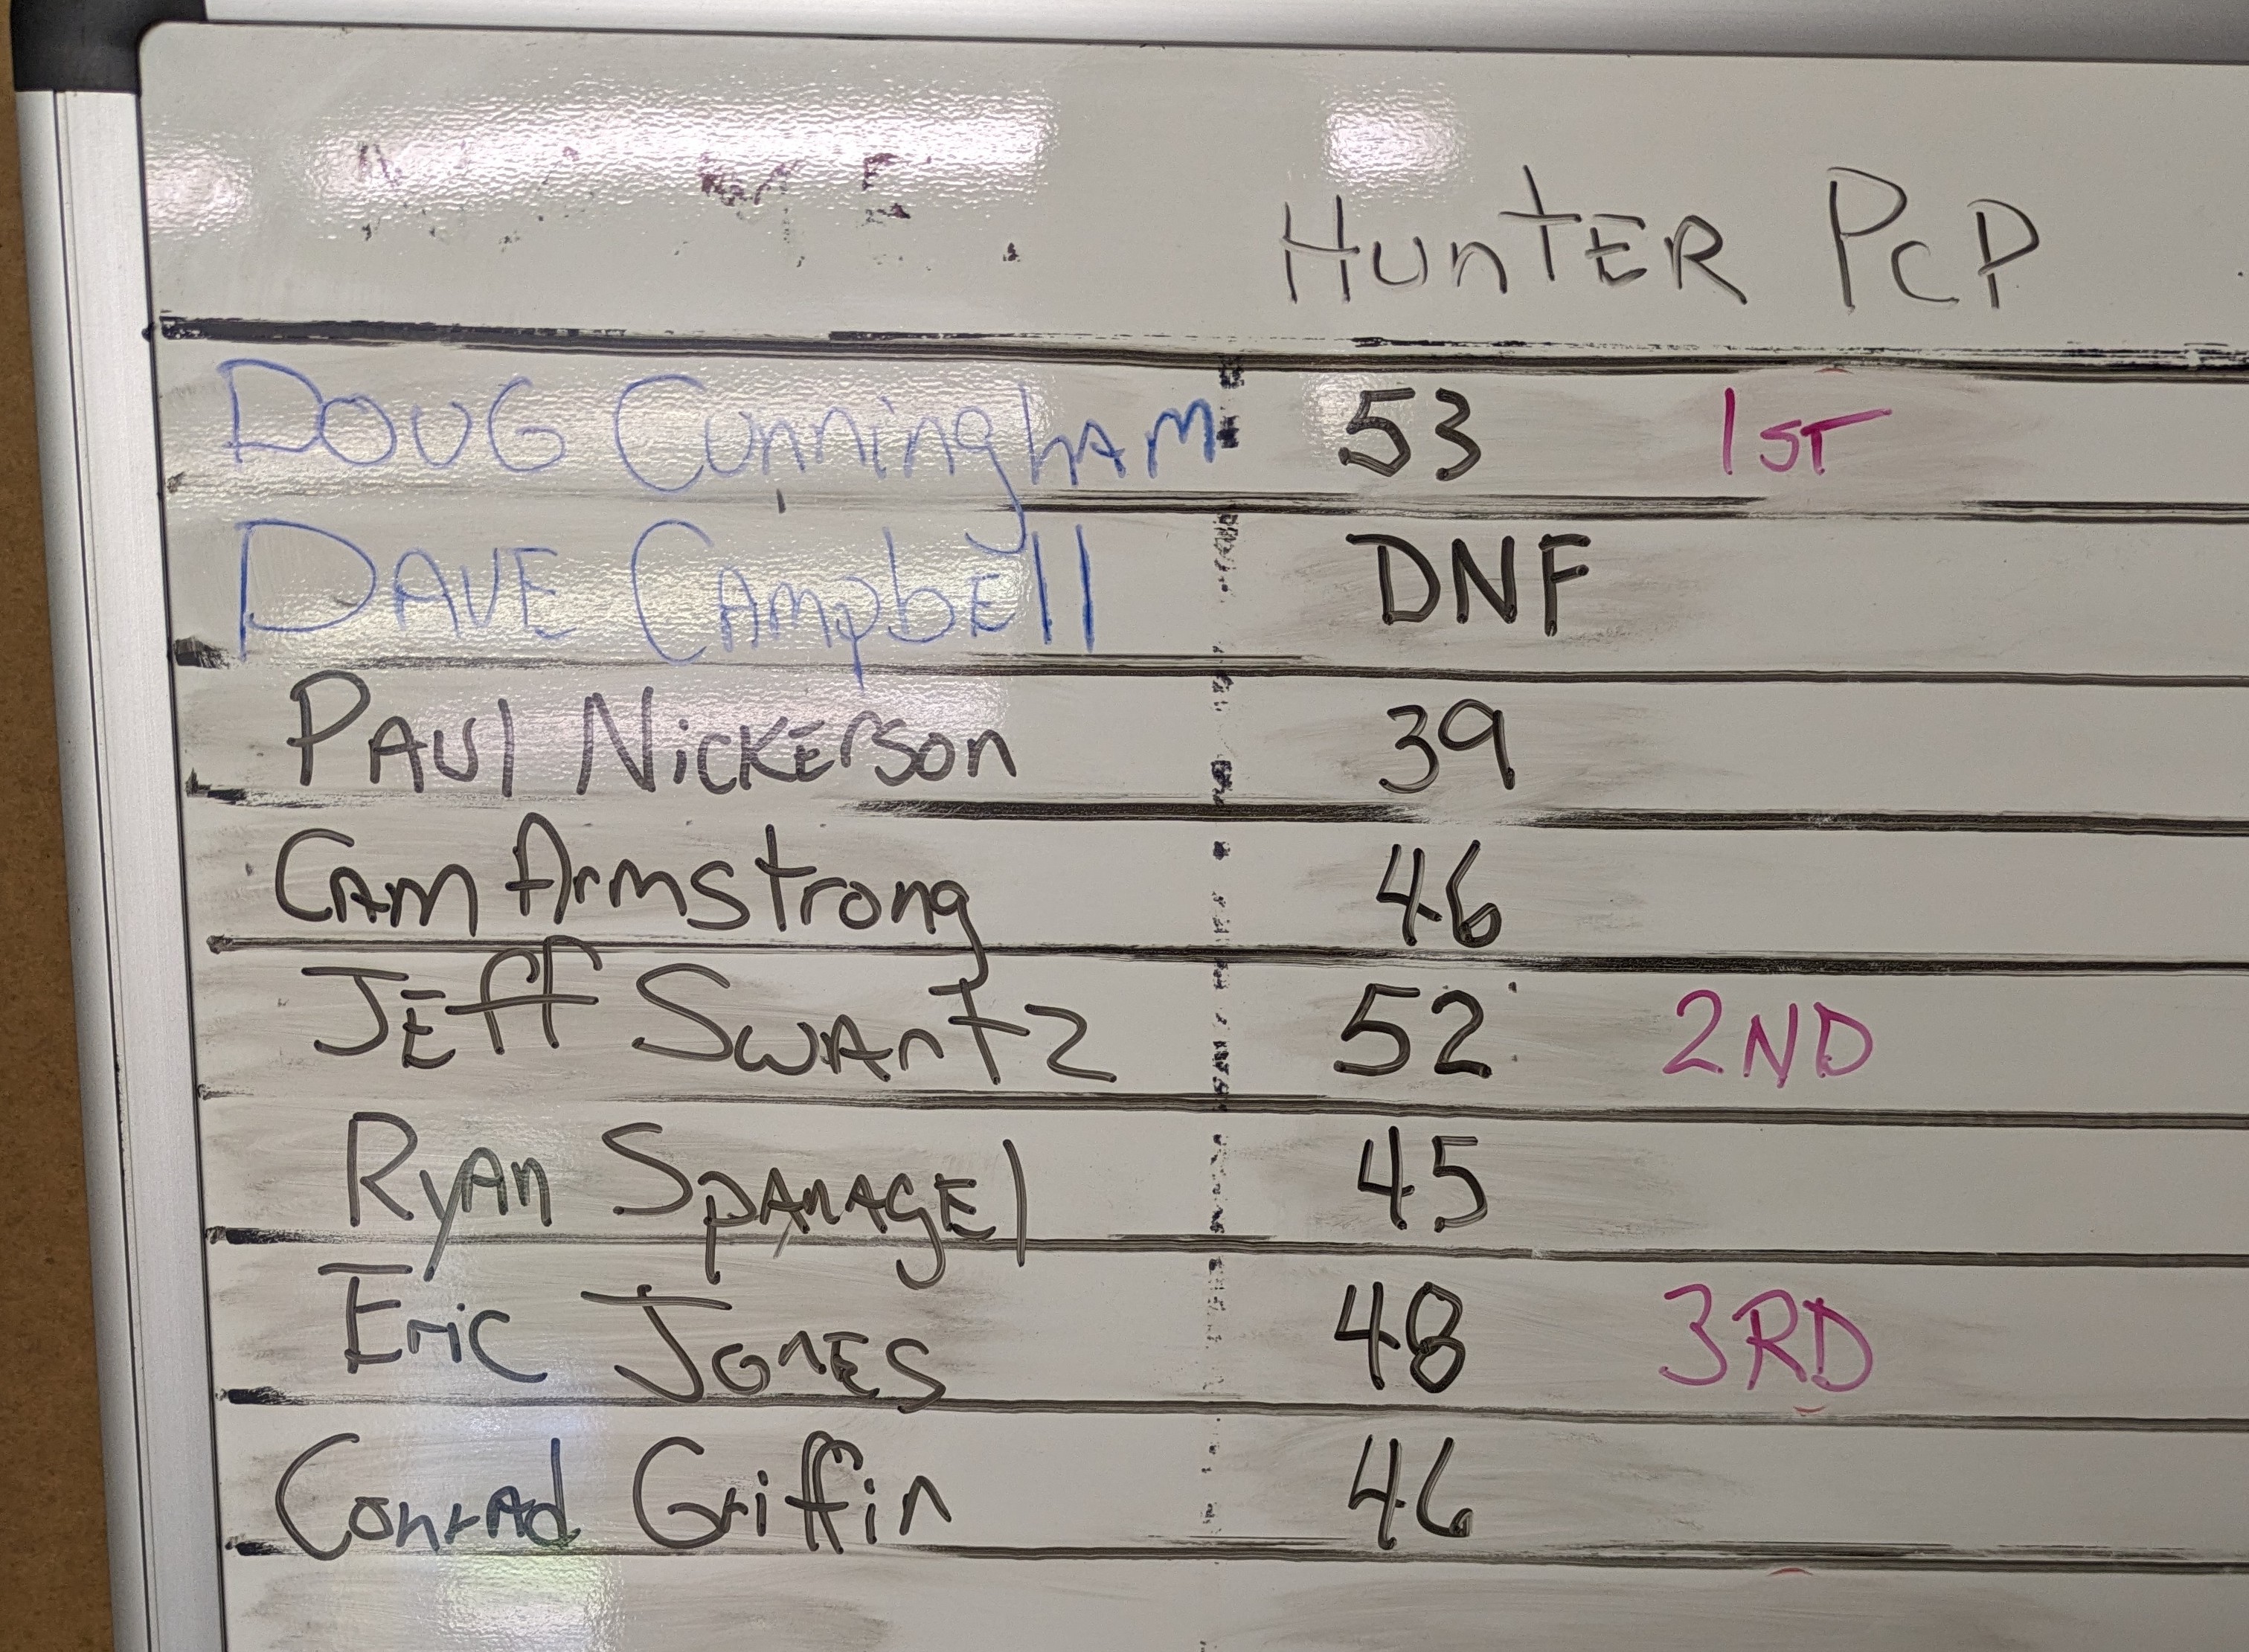 HunTER PcP
DOUG CunninghAM 53 1ST
DAVE CAmpbEll DNF
PAUl NickERson 39
CAm Armstrong 46
JEff SwArtz 52 2ND
RyAn SpAnAgEl 45
Eric JonES 48 3RD
ConrAd Griffin 46